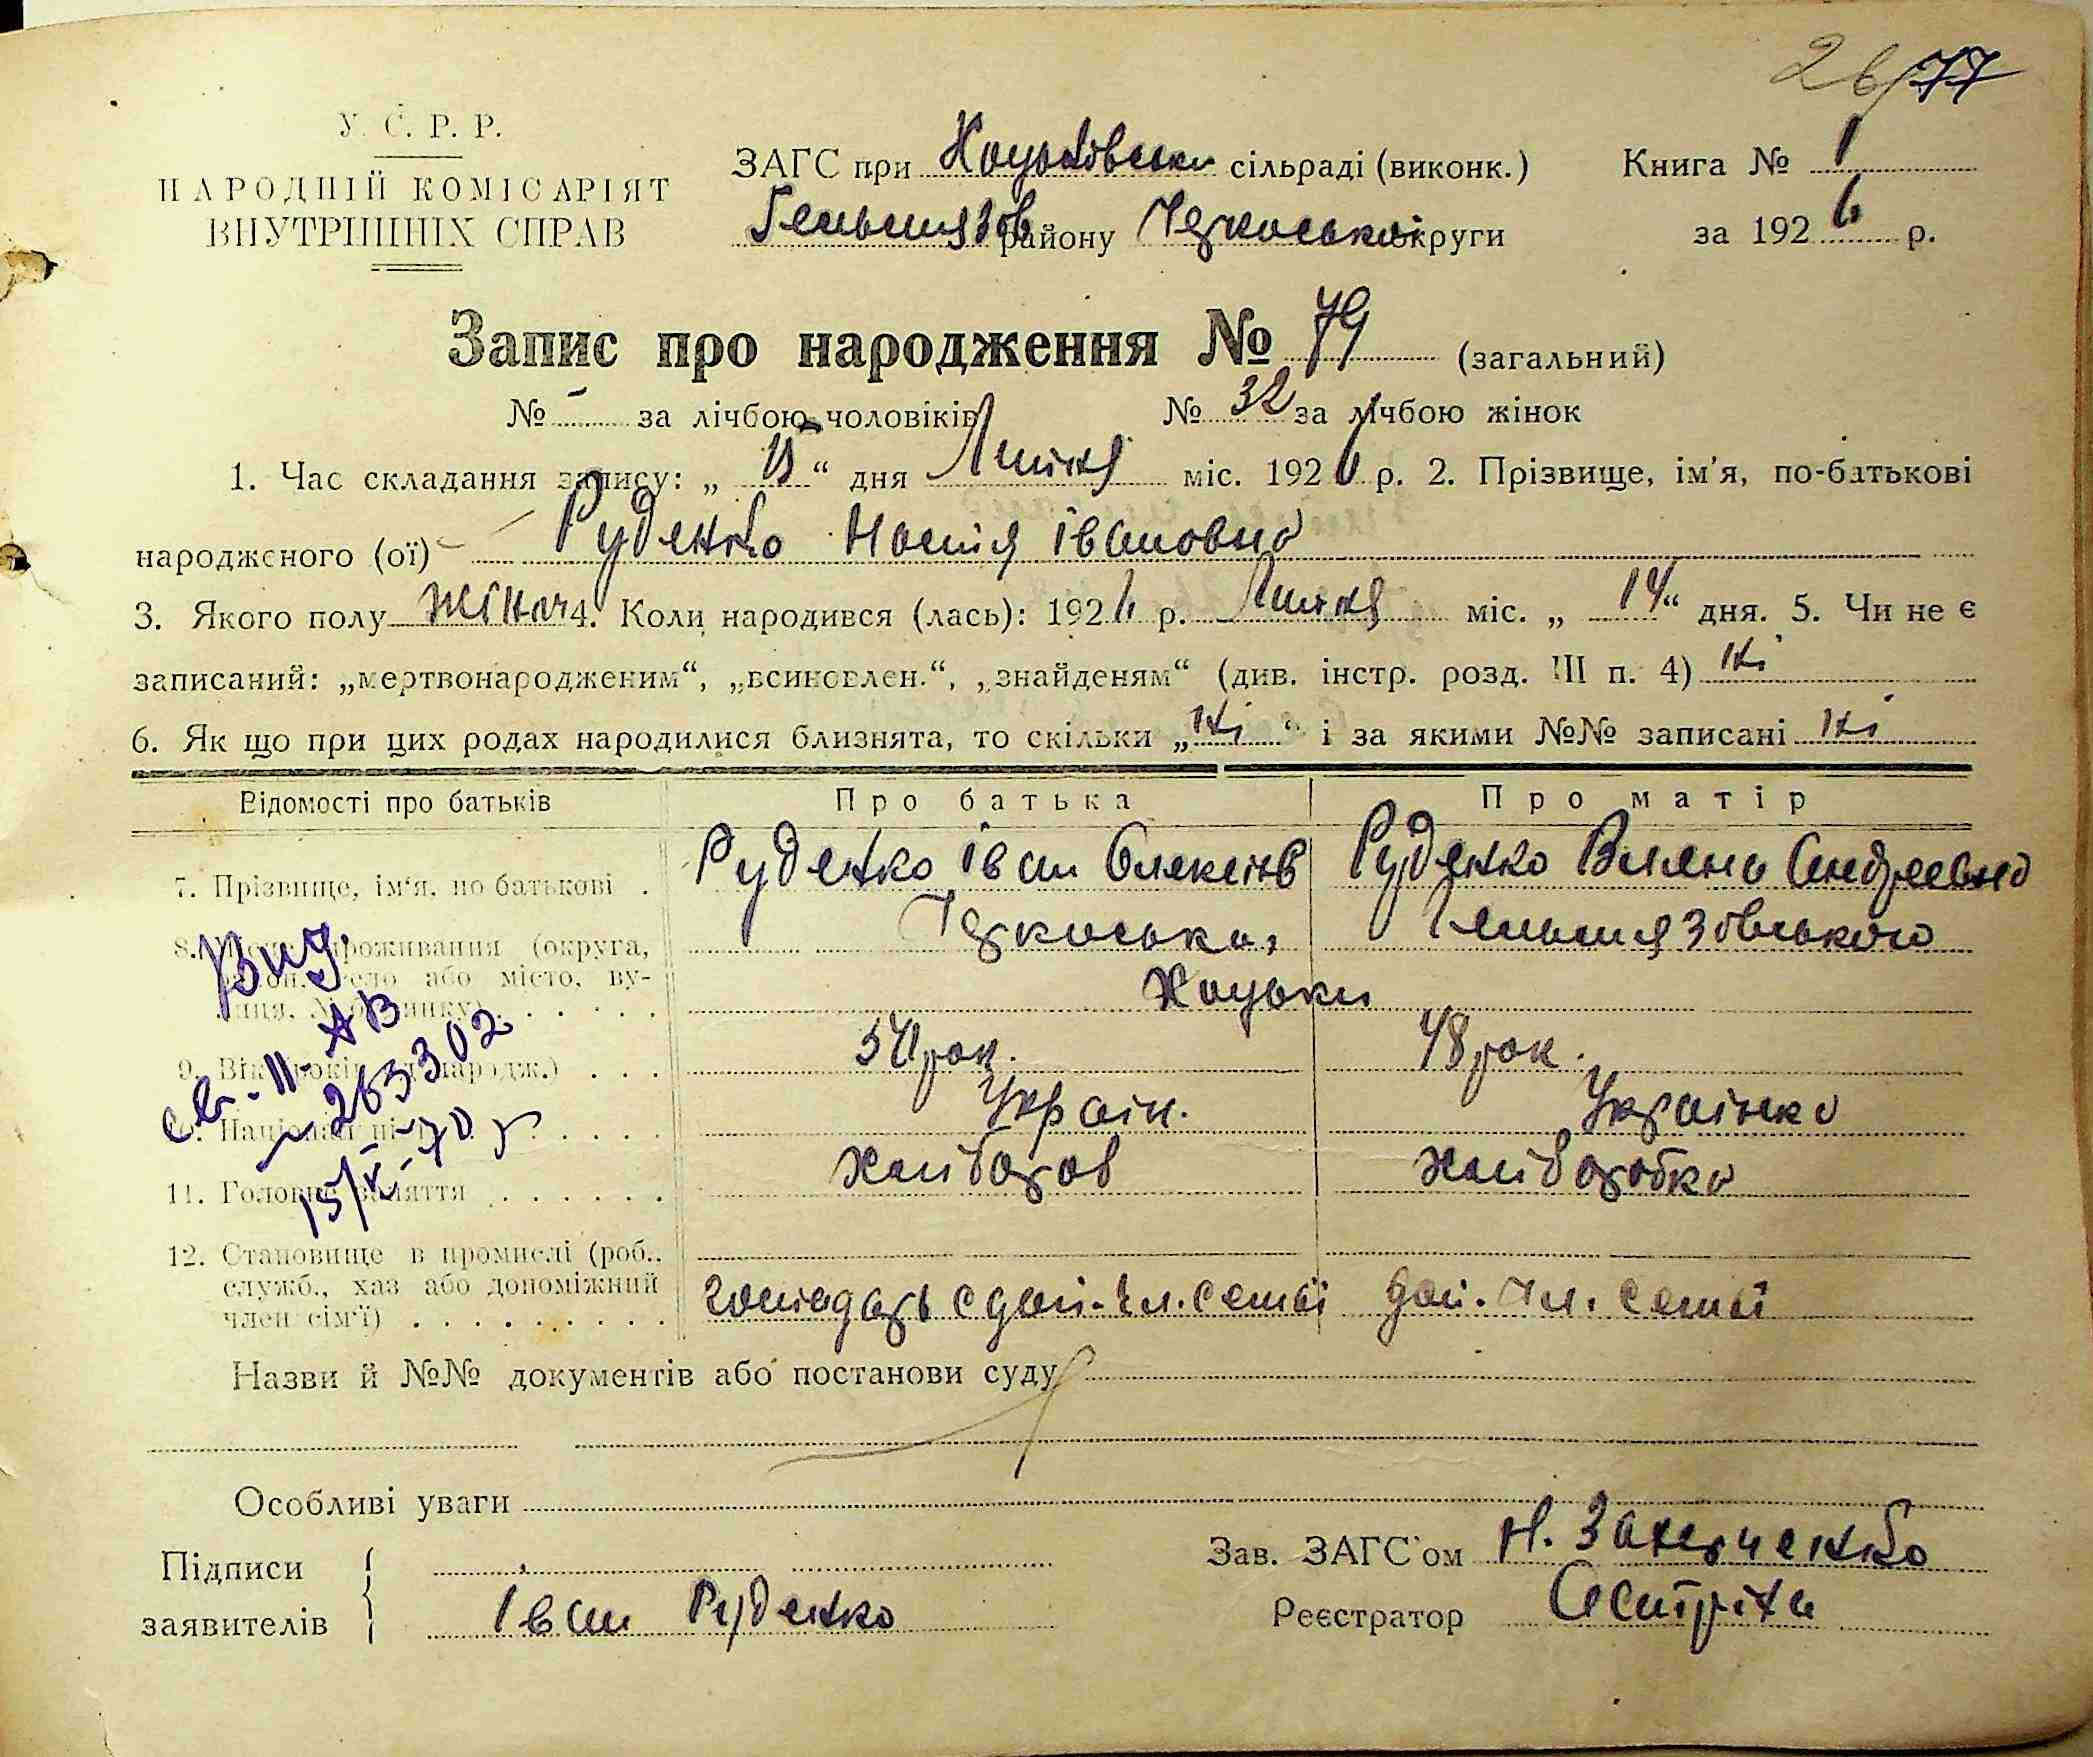 26/77
У. С. Р. Р.
НАРОДНІЙ КОМІСАРІЯТ
ВНУТРІШНІХ СПРАВ
ЗАГС при Хоцьківськи сільраді (виконк.)
Гельмязів району Черкоської округи
Книга № 1
за 1926 р.
Запис про народження № 79 (загальний)
№ - за лічбою чоловіків № 32 за лічбою жінок
1. Час складання запису: „ 15 “ дня Липня міс. 1926 р. 2. Прізвище, ім'я, по-батькові
народженого (ої) Руденко Настія Івановна
3. Якого полу жіноч 4. Коли народився (лась): 1926 р. Липня міс. „ 14 “ дня. 5. Чи не є
записаний: „мертвонародженим“, „всиновлен.“, „знайденям“ (див. інстр. розд. III п. 4) ні
6. Як що при цих родах народилися близнята, то скільки „ ні “ і за якими №№ записані ні
Відомості про батьків Про батька Про матір
7. Прізвище, ім'я, по батькові . Руденко Іван Олексіїв Руденко Андреевна
8. Місце проживання (округа, Черкоська, Гельмязівського
район, село або місто, ву-
лиця, № будинку) . . . . . Хоцьки
9. Вік (років народж.) . . . рок. 48 рок.
10. Національність . . . . . Україн. Українка
11. Головне заняття . . . . . . хлібороб хліборобка
12. Становище в промислі (роб.,
служб., хаз або допоміжний господарь с доп. чл. семьї доп. чл. семьї
член сім'ї) . . . . . . . . .
Вид.
св. II-АВ
~ 263302
15/V-70 г
Назви й №№ документів або постанови суду
Особливі уваги
Підписи
заявителів
Іван Руденко
Зав. ЗАГС'ом Н. Захарченко
Реєстратор